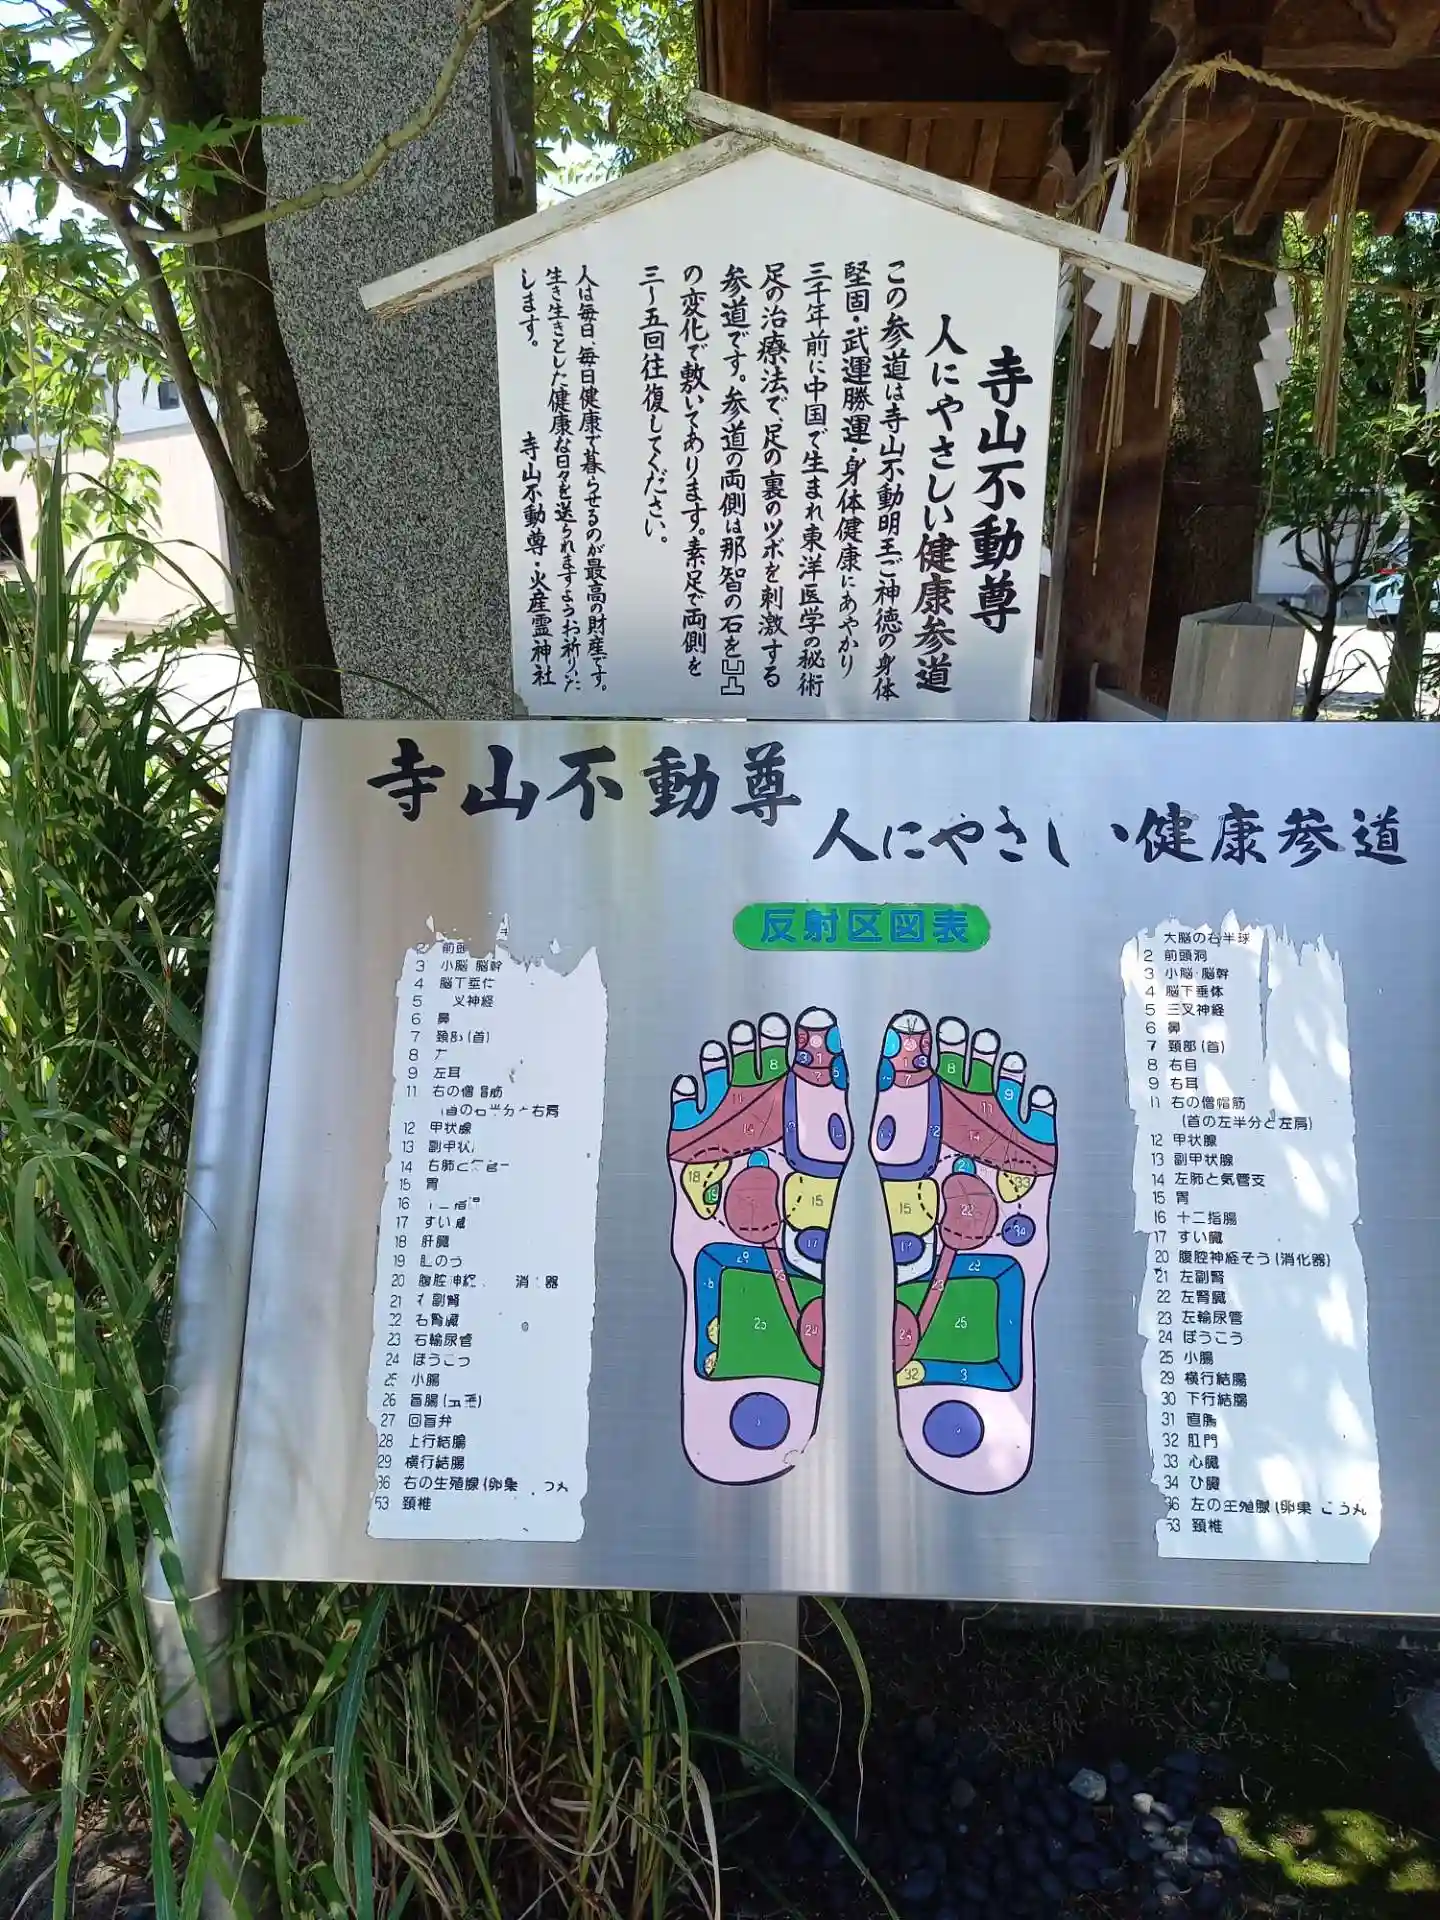 寺山不動尊
人にやさしい健康参道
この参道は寺山不動明王ご神徳の身体
堅固・武運勝運・身体健康にあやかり
三千年前に中国で生まれ東洋医学の秘術
足の治療法で、足の裏のツボを刺激する
参道です。参道の両側は那智の石を凹凸
の変化で敷いてあります。素足で両側を
三〜五回往復してください。
人は毎日、毎日健康で暮らせるのが最高の財産です。
生き生きとした健康な日々を送られますようお祈りいた
します。
寺山不動尊・火産霊神社
寺山不動尊
人にやさしい健康参道
反射区図表
2 前頭
3 小脳 脳幹
4 脳下垂体
5 叉神経
6 鼻
7 頸部(首)
8
9 左耳
11 右の僧帽筋
(首の右半分と右肩
12 甲状腺
13 副甲状
14 右肺と
15 胃
16 十二指
17 すい臓
18 肝臓
19 のう
20 腹腔神経 消 器
21 副腎
22 右腎臓
23 右輸尿管
24 ぼうこう
25 小腸
26 盲腸(
27 回盲弁
28 上行結腸
29 横行結腸
36 右の生殖腺(卵巣 う丸
53 頸椎
大脳の右半球
2 前頭洞
3 小脳・脳幹
4 脳下垂体
5 三叉神経
6 鼻
7 頸部(首)
8 右目
9 右耳
11 右の僧帽筋
(首の左半分と左肩)
12 甲状腺
13 副甲状腺
14 左肺と気管支
15 胃
16 十二指腸
17 すい臓
20 腹腔神経そう(消化器)
21 左副腎
22 左腎臓
23 左輸尿管
24 ぼうこう
25 小腸
29 横行結腸
30 下行結腸
31 直腸
32 肛門
33 心臓
34 ひ臓
36 左の生殖腺(卵巣 こう丸
53 頸椎